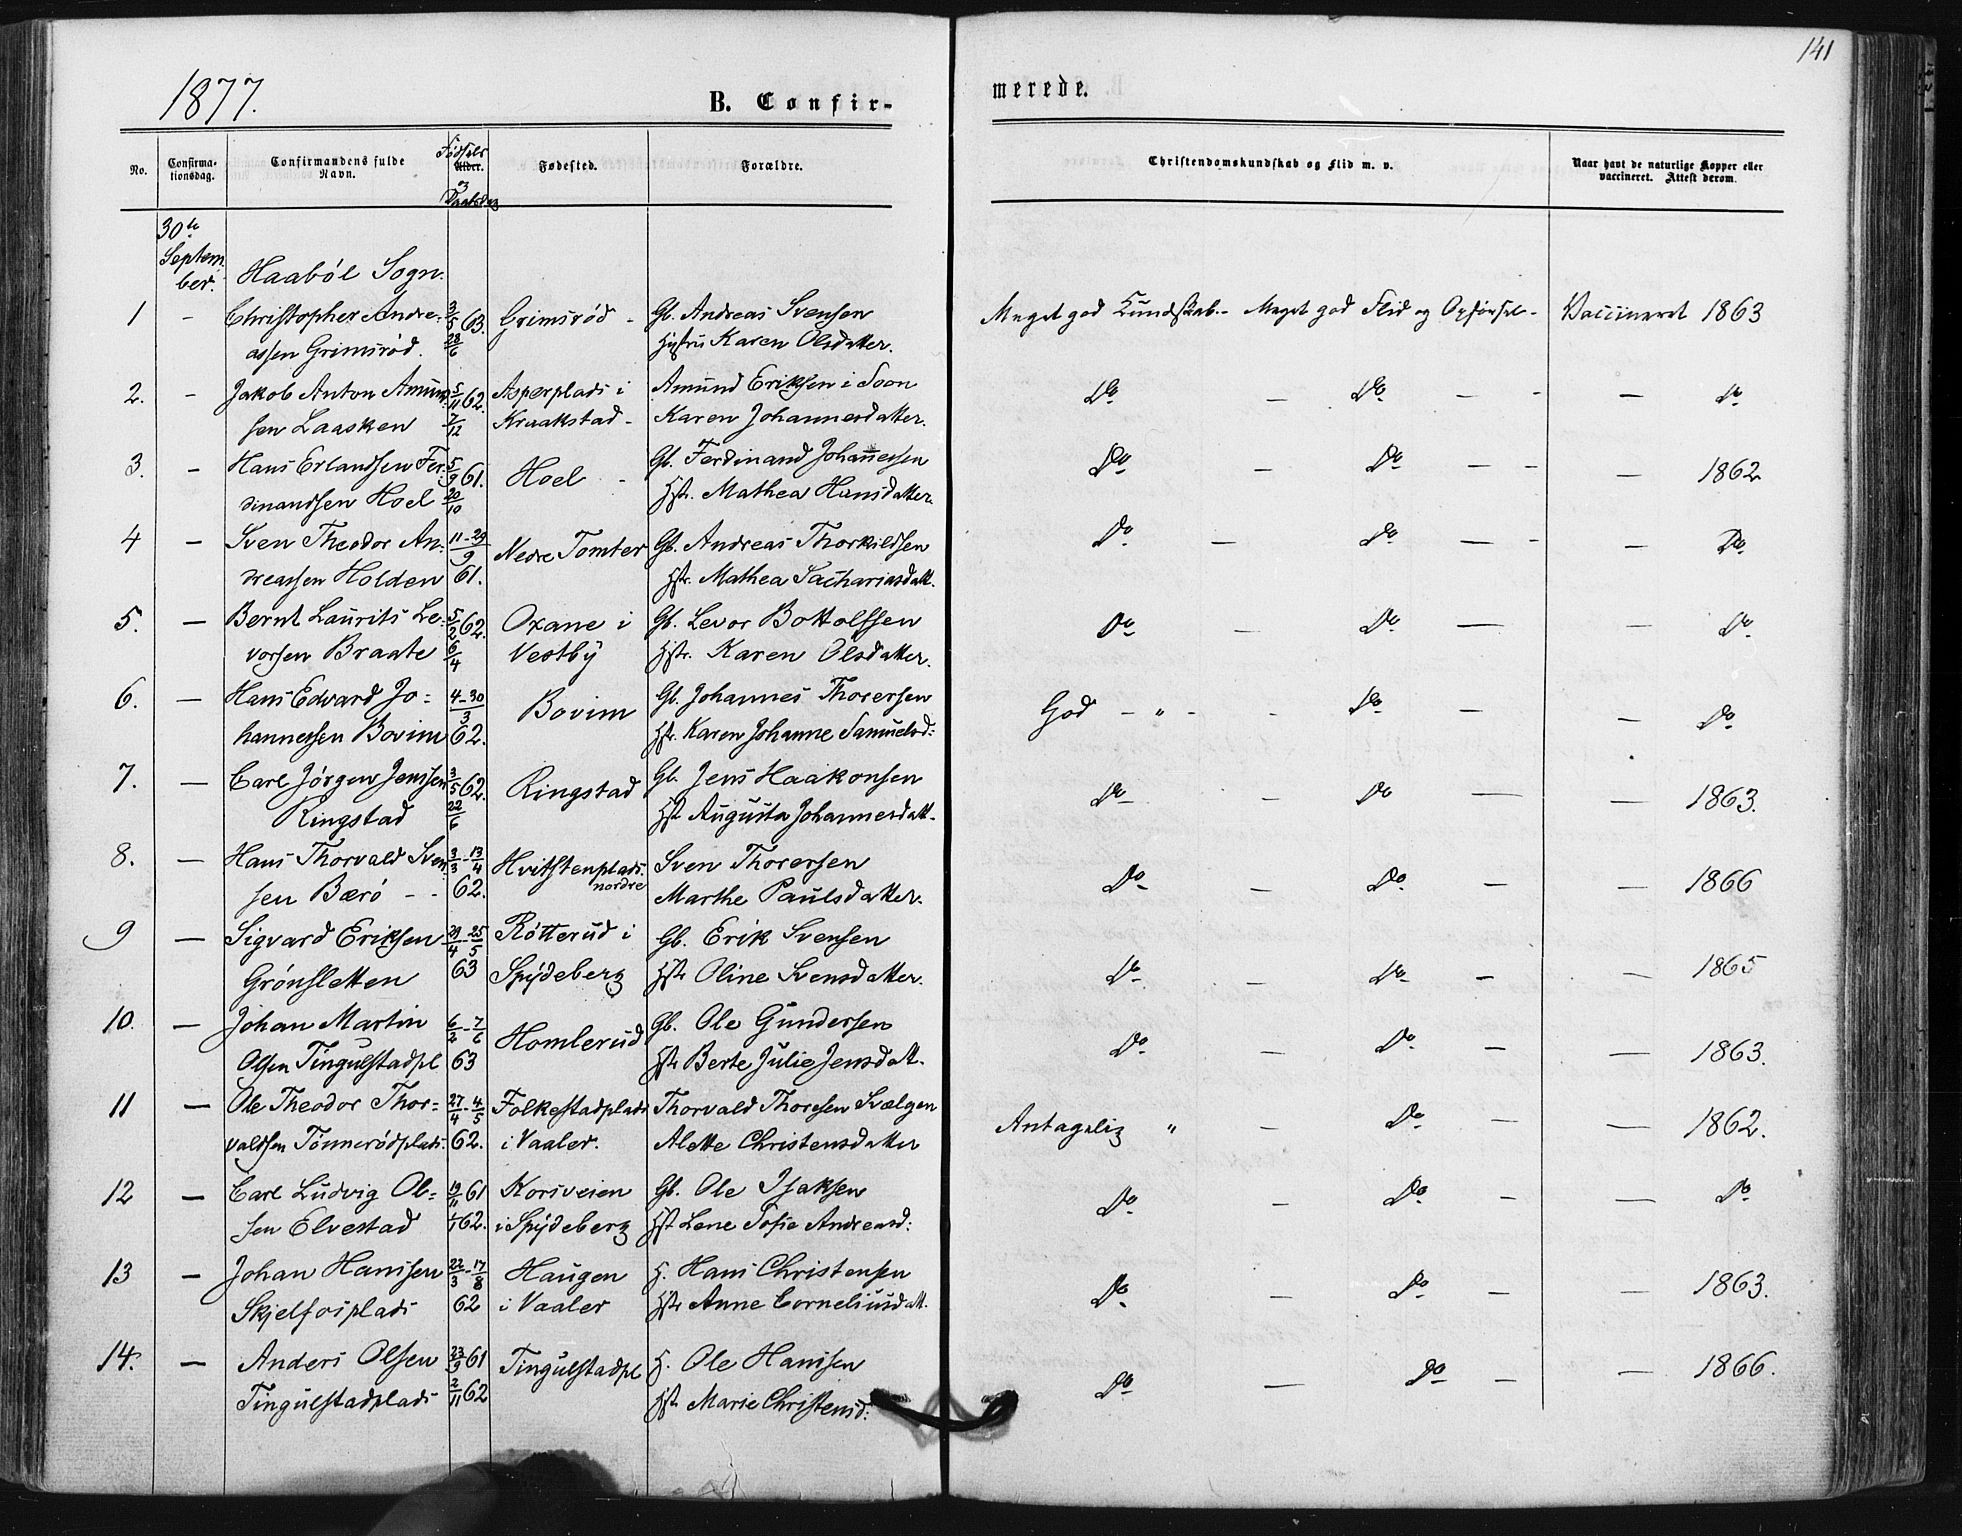 141
1877.
B. Confir-
merede.
No.
Confirma-
tionsdag.
Confirmandens fulde
Navn.
Fødsels
Alder.
og
Daabsdag
Fødested.
Forældre.
Christendomskundskab og Flid m. v.
Naar havt de naturlige Kopper eller
vaccineret. Attest derom.
30te
Septem
ber.
Haaböl Sogn.
1 - Christopher Andre- 3/5 63. Grimsröd - Gb. Andreas Svensen Meget god Kundskab. - Meget god Flid og Opförsel - Vaccineret 1863
assen Grimsröd. 28/6 Hustru Karen Olsdatter.
2. - Jakob Anton Amund- 5/11 62. Asperplads i Amund Eriksen i Soon Do - Do - - - Do
sen Laasken 7/12 Kraakstad - Karen Johannesdatter.
3. - Hans Erlandsen Fer- 5/9 61. Hoel - Gb. Ferdinand Johannessen Do - Do - - - 1862
dinandsen Hoel 20/10 Hstr. Mathea Hansdatter.
4 - Sven Theodor An- 11-29/9 Nedre Tomter Gb. Andreas Thorkildsen Do - Do - - - Do.
dreassen Holden 61. Hstr. Mathea Sachariasdatt.
5. - Bernt Laurits Le- 5/2 62. Oxane i Gb. Levor Bottolfsen Do - Do - - Do
vorsen Braate 6/4 Vestby Hstr. Karen Olsdatter.
6. - Hans Edvard Jo- 4-30/3 Bovim Gb. Johannes Thorersen God - " - - Do - - Do
hannessen Bovim 62. Hstr. Karen Johanne Samuelsd:
7. - Carl Jörgen Jenssen 3/5 62. Ringstad Gb. Jens Haakonsen Do - Do - - 1863.
Ringstad 22/6 Hstr Augusta Johannesdatt.
8. - Hans Thorvald Sven- 3/3-13/4 Hvitstenplads. Sven Thorersen Do - Do - - 1866
sen Bærö - - 62. nordre Marthe Paulsdatter.
9 - Sigvard Eriksen 29/4-25/5 Rötterud i Gb. Erik Svensen Do - Do - - 1865
Grönsletten 63 Spydeberg Hstr Oline Svensdatter.
10. - Johan Martin 6/2-7/6 Homlerud Gb. Ole Gundersen Do - Do - - 1863.
Olsen Tingulstadpl 63 Hstr Berte Julie Jensdatt.
11 - Ole Theodor Thor- 27/4-4/5 Folkestadplads Thorvald Thoresen Svælgen Antagelig " - Do - - 1862.
valdsen Tönnerödplads. 62. i Vaaler. Alette Christensdatter
12 - Carl Ludvig Ol- 19/11 61 Korsveien Gb. Ole Isaksen Do - Do - - Do
sen Elvestad 1/1 62. i Spydeberg Hstr Lene Sofie Andreasd:
13 - Johan Hansen 22/3-17/8 Haugen H. Hans Christensen Do - Do - - 1863.
Skjelfosplads 62 i Vaaler Hstr Anne Corneliusdatt.
14. - Anders Olsen 23/9 61 Tingulstadpl H. Ole Hansen Do - Do - - 1866.
Tingulstadplads 2/11 62 Hstr. Marie Christensd: